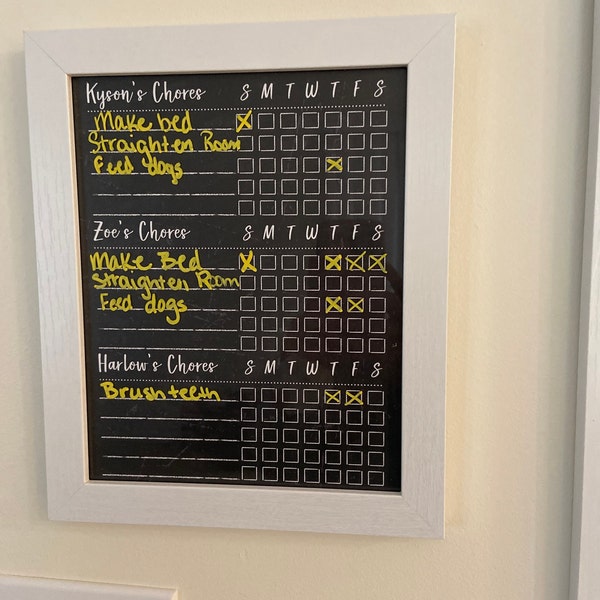 Kyson's Chores S M T W T F S
Make bed
Straighten Room
Feed dogs
Zoe's Chores S M T W T F S
Make Bed
Straighten Room
Feed dogs
Harlow's Chores S M T W T F S
Brush teeth